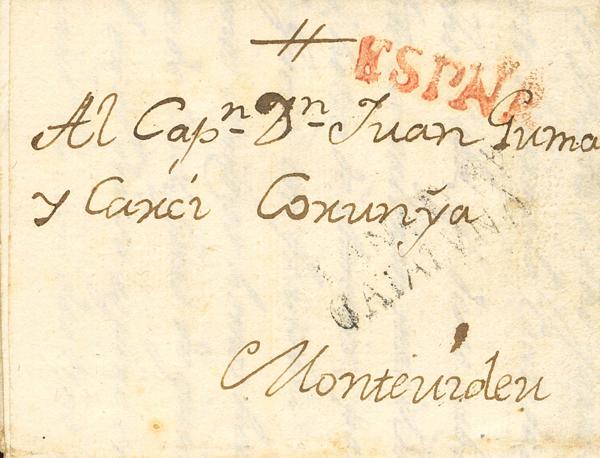 ESPAÑA
Al Capn Dn Juan Guma
y Carèi Corunỹa
CATALUÑA
Montevideu